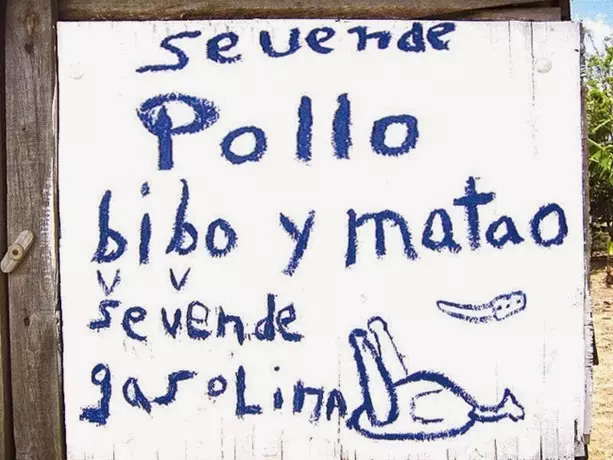 Se vende
Pollo
bibo y matao
v v
Se vende
gasoLina